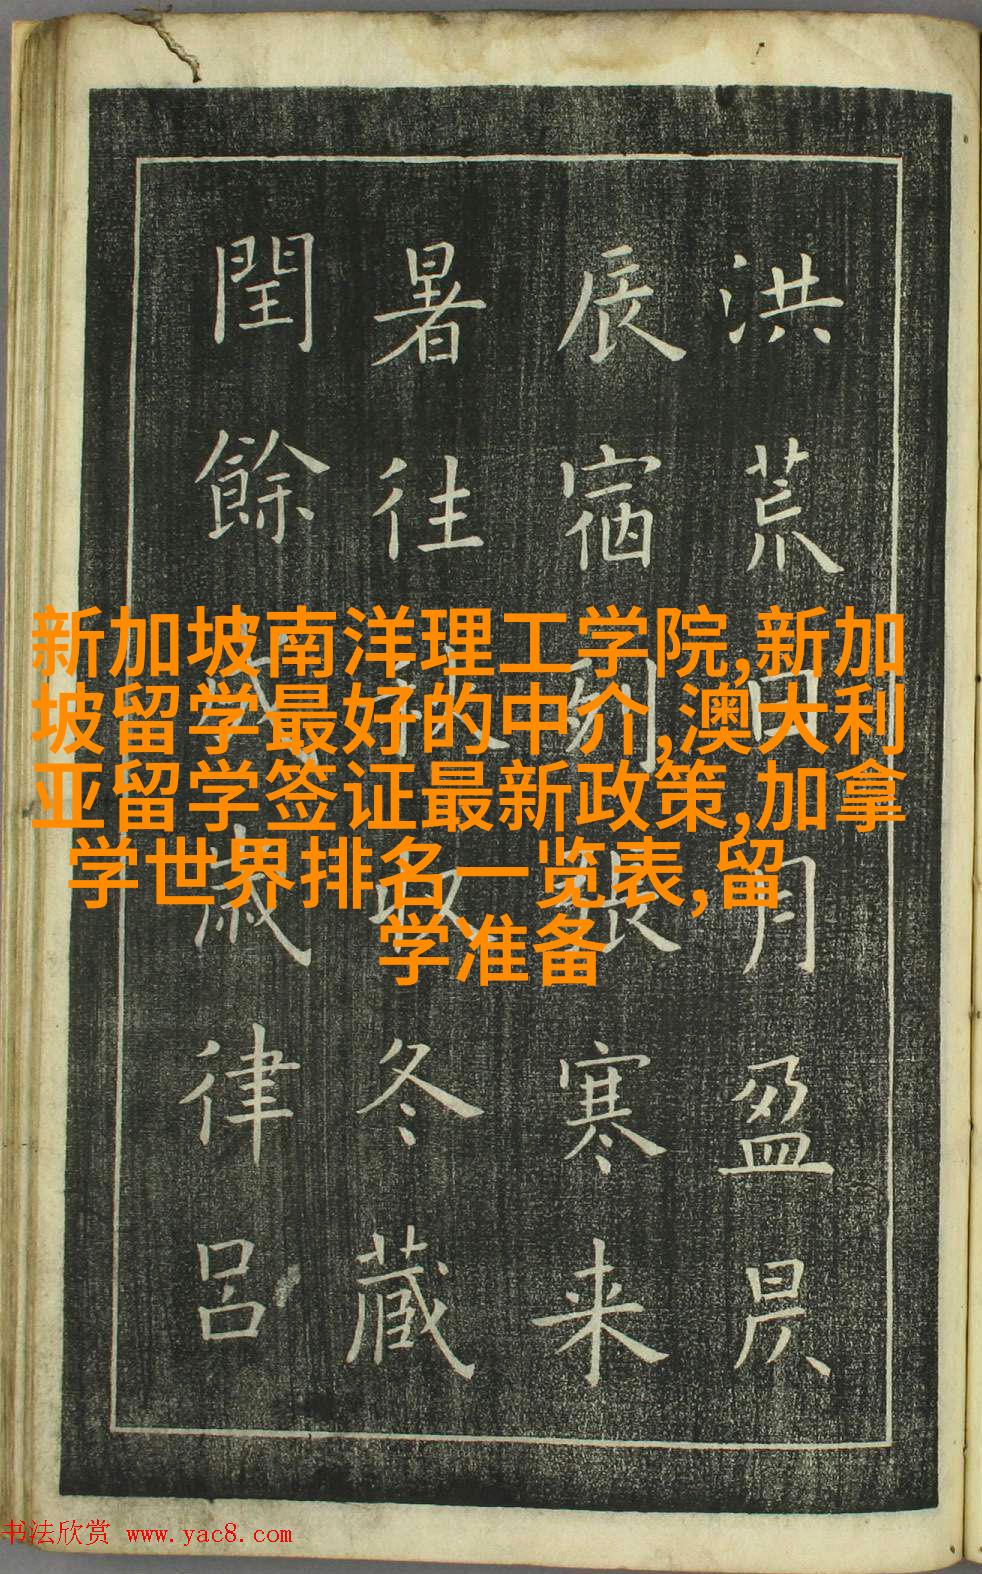 洪荒日月盈昃
辰宿列張寒来
暑往秋収冬蔵
閏餘成歳律呂
新加坡南洋理工学院,新加
坡留学最好的中介,澳大利
亚留学签证最新政策,加拿
学世界排名一览表,留
学准备
书法欣赏 www.yac8.com